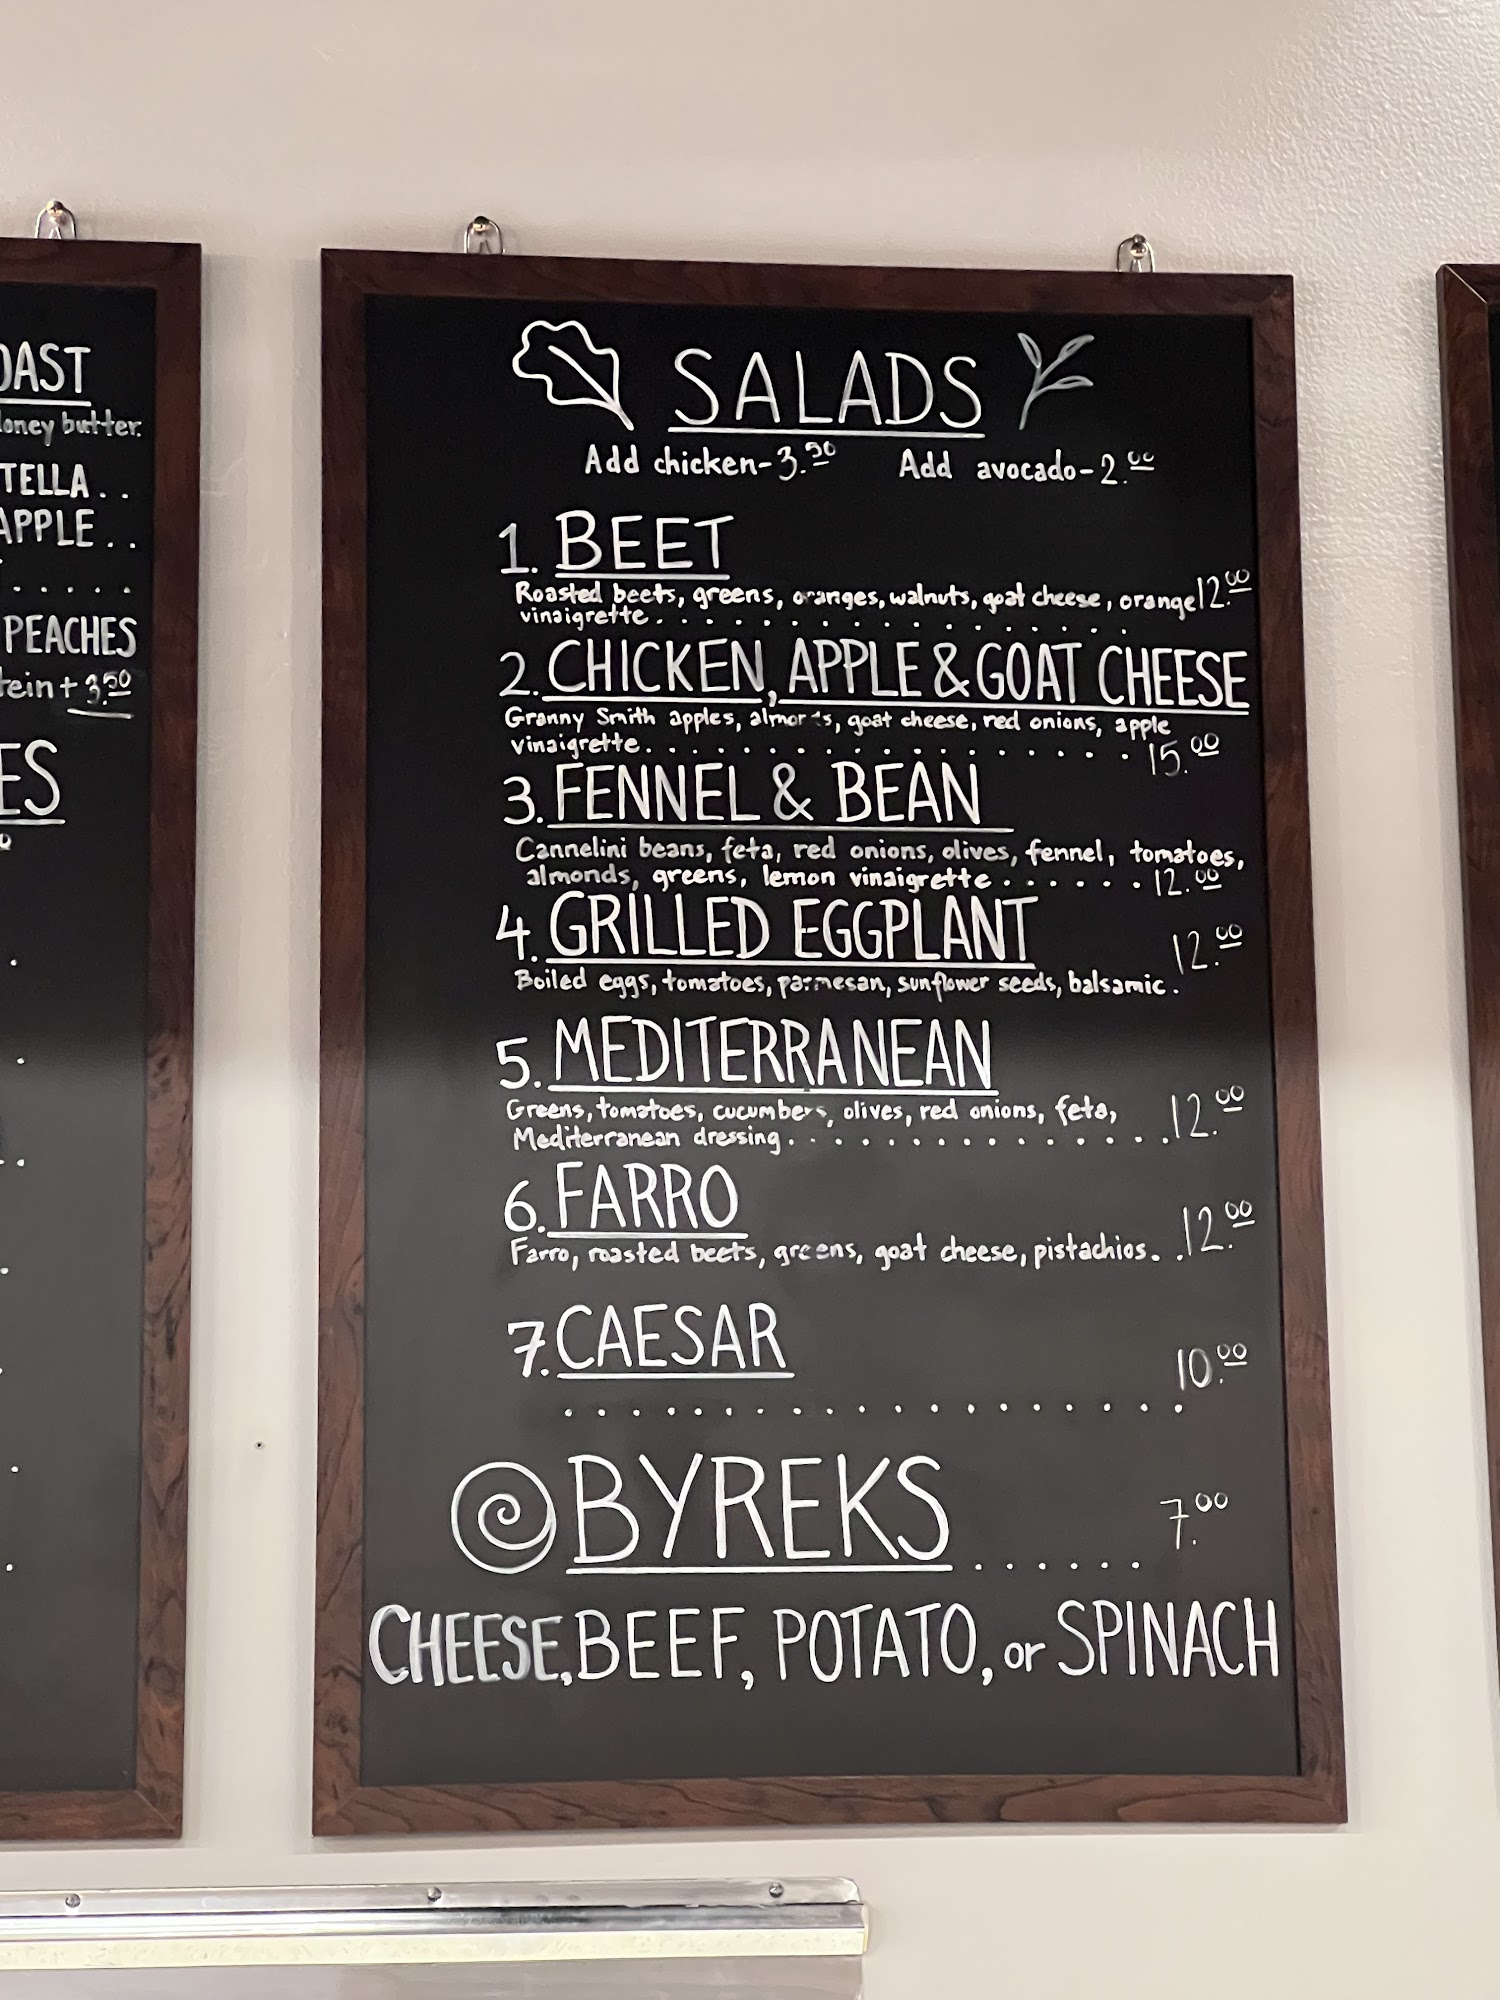 OAST
Honey butter.
TELLA . .
APPLE . .
. . . . .
PEACHES
tein + 3.50
ES
SALADS
Add chicken-3.50 Add avocado-2.00
1. BEET
Roasted beets, greens, oranges, walnuts, goat cheese, orange 12.00
vinaigrette. . . . . . . . . . . . . . . . .
2. CHICKEN, APPLE & GOAT CHEESE
Granny Smith apples, almonds, goat cheese, red onions, apple
vinaigrette. . . . . . . . . . . . . . . . . 15.00
3. FENNEL & BEAN
Cannelini beans, feta, red onions, olives, fennel, tomatoes,
almonds, greens, lemon vinaigrette . . . . . . . 12.00
4. GRILLED EGGPLANT 12.00
Boiled eggs, tomatoes, parmesan, sunflower seeds, balsamic .
5. MEDITERRANEAN
Greens, tomatoes, cucumbers, olives, red onions, feta, 12.00
Mediterranean dressing. . . . . . . . . . . . . . .
6. FARRO
Farro, roasted beets, greens, goat cheese, pistachios. . 12.00
7. CAESAR
. . . . . . . . . . . . . . . . . . . 10.00
BYREKS . . . . . . 7.00
CHEESE, BEEF, POTATO, or SPINACH